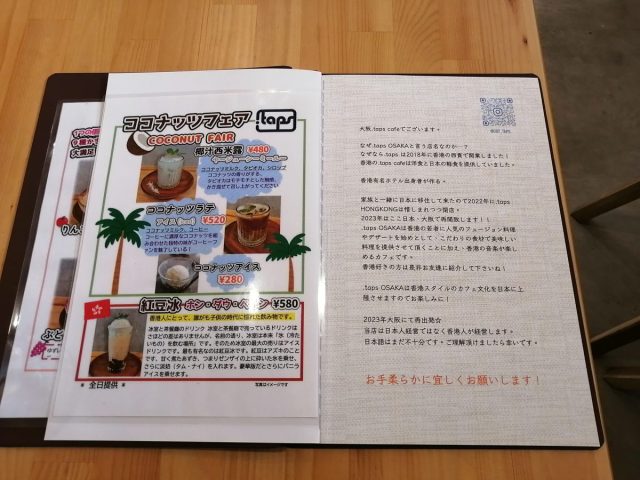 ココナッツフェア
.taps
COCONUT FAIR
椰汁西米露 ¥480
ココナッツミルク、タピオカ、シロップ
ココナッツの香りがする、
タピオカはモチモチとした触感、
かき混ぜて召し上がってください
ココナッツラテ
アイス ¥520
ココナッツミルク、コーヒー
コーヒーに濃厚なココナッツを組
み合わせた独特の味がコーヒーファ
ンを魅了している!
ココナッツアイス
¥280
紅豆冰 ホン・ダウ・ベン ¥580
香港人にとって、誰がも子供の時代に憧れた飲み物です。
氷室と茶餐廳のドリンク 氷室と茶餐廳で売っているドリンクは
さほどの差はありませんが、名前の通り、氷室は本来「氷（冷た
いもの）を飲む場所」です。そのため氷室の最大の売りはアイス
ドリンクです。最も有名なのは紅豆冰です。紅豆はアズキのこと
です、甘く煮たあずき、つまりぜンザイの上に砕いた氷を乗せ、
さらに淡奶（タム・ナイ）を入れます。豪華版だとさらにバニラ
アイスを乗せます。
* 全日提供 *
写真はイメージです
大阪.taps cafeでございます。
なぜ.taps OSAKAと言う店名なのか…?
なぜなら.taps は2018年に香港の西貢で開業しました!
香港の.taps cafeは洋食と日本の軽食を提供していました。
香港有名ホテル出身者が作る。
家族と一緒に日本に移住して来たので2022年に.taps
HONGKONGは惜しまれつつ閉店。
2023年はここ日本・大阪で再開致します!!
.taps OSAKAは香港の若者に人気のフュージョン料理
やデザートを始めとして、こだわりの食材で美味しい
料理を提供させて頂くことに加え、香港の音楽が楽し
めるカフェです。
香港好きの方は是非お友達に紹介して下さいね!
.taps OSAKAは香港スタイルのカフェ文化を日本に上
陸させますのでお楽しみに!
2023年大阪にて再出発☆
当店は日本人経営ではなく香港人が経営します。
日本語はまだ不十分です。ご理解頂けましたら幸いです。
お手柔らかに宜しくお願いします!